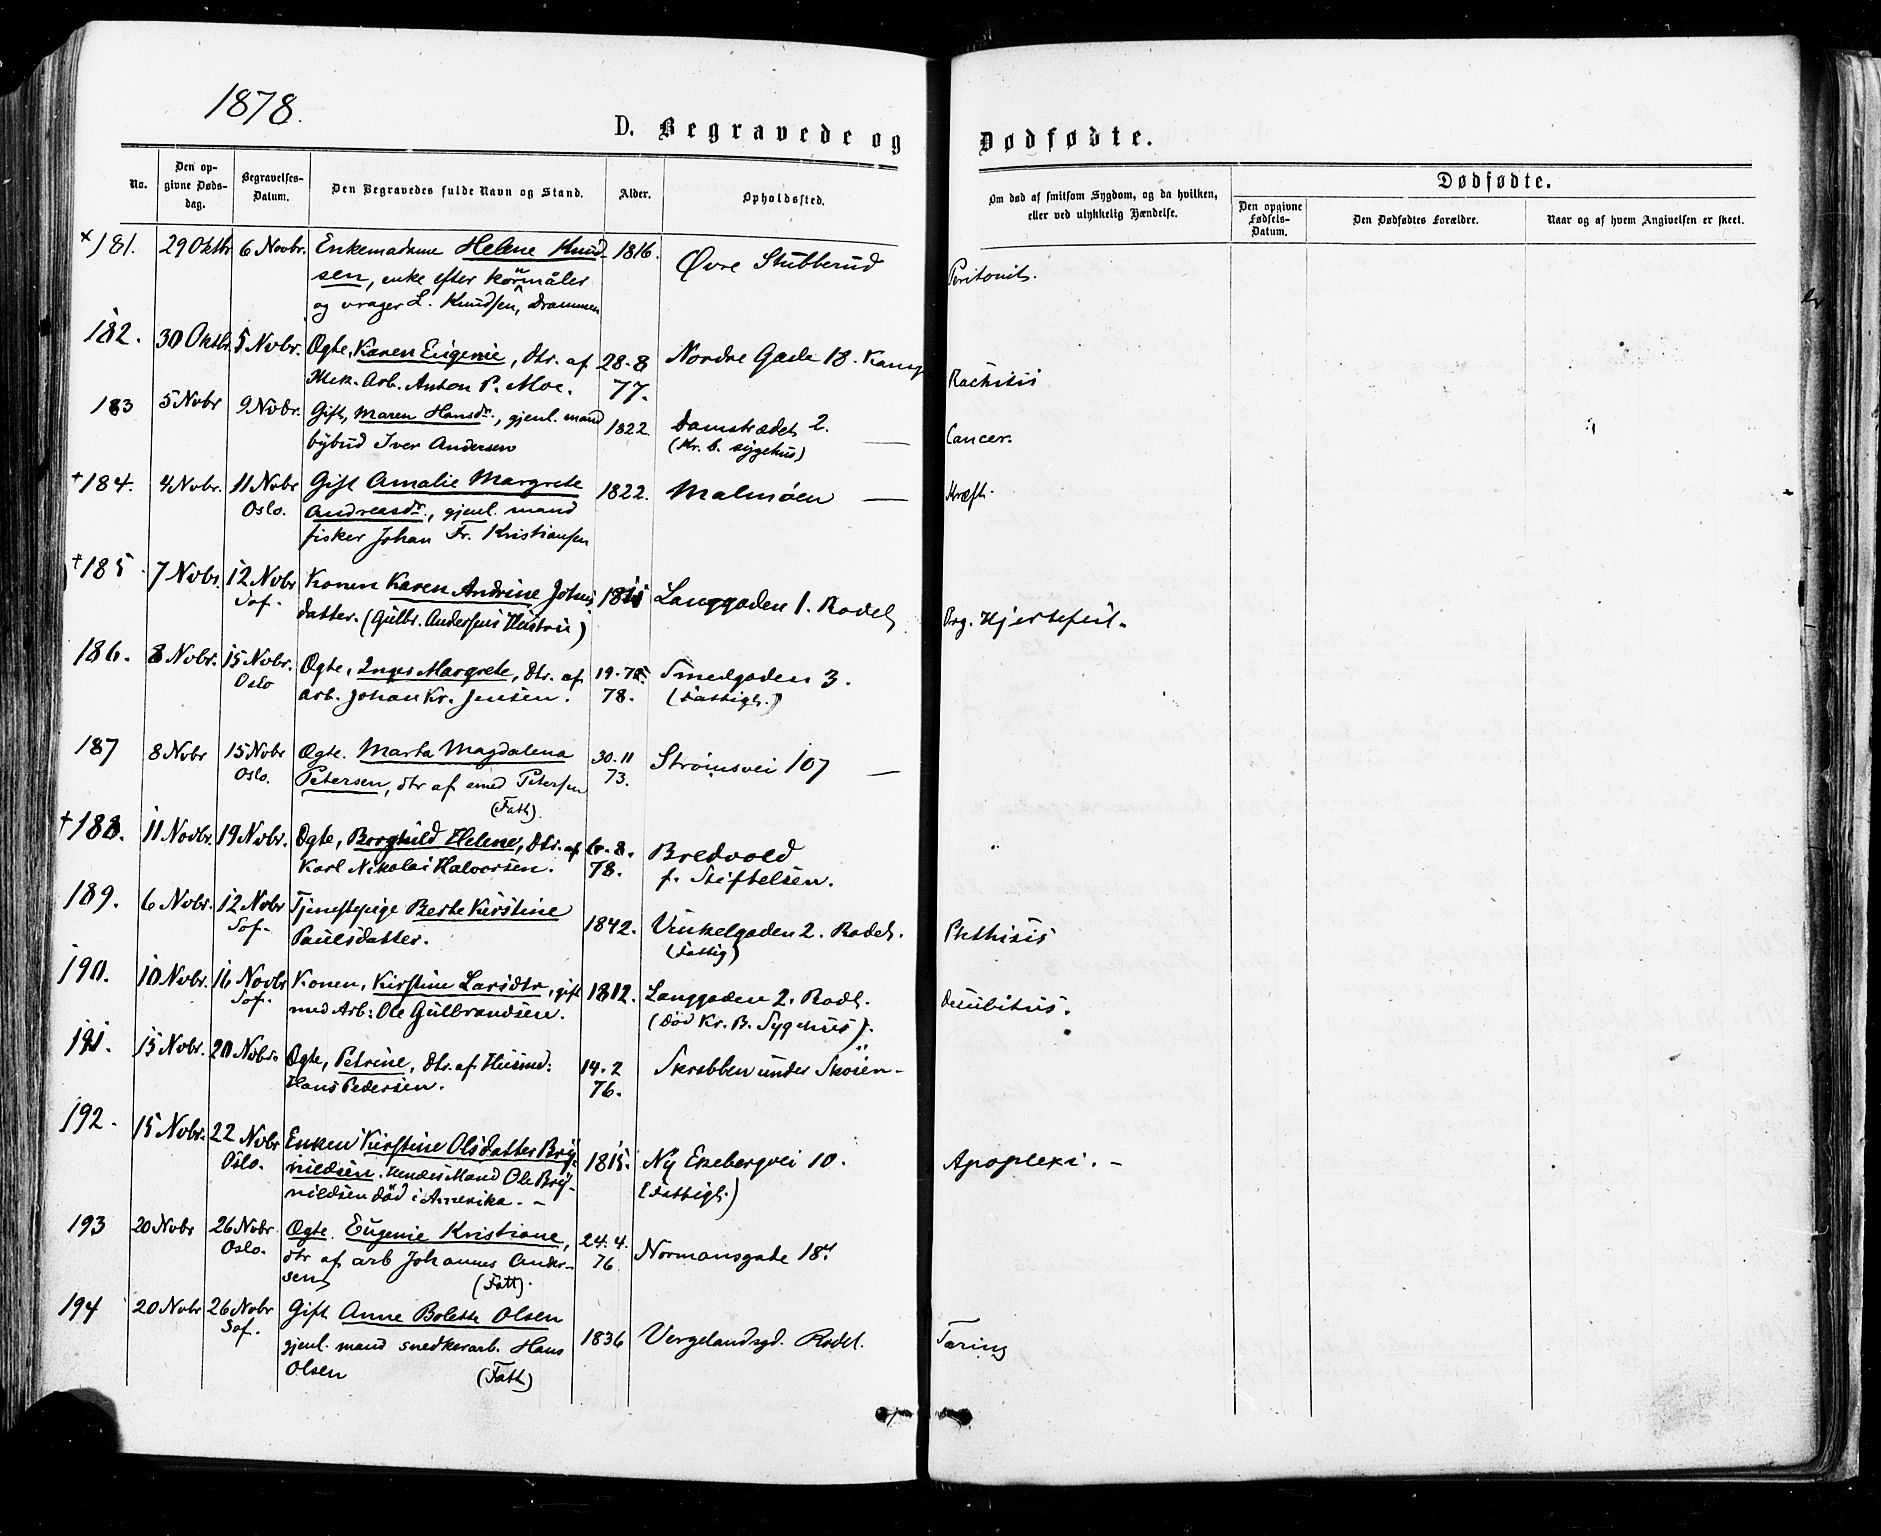 1878.
D. Begravede og Dødfødte.
No.
Den opgivne Dødsdag.
Begravelses-Datum.
Den Begravedes fulde Navn og Stand.
Alder.
Opholdssted.
Om død af smitsom Sygdom, og da hvilken, eller ved ulykkelig Hændelse.
Dødfødte.
Den opgivne Fødsels-Datum.
Den Dødfødtes Forældre.
Naar og af hvem Angivelsen er skeet.
× 181. 29 Oktbr 6 Novbr. Enkemadame Helene Knud- 1816. Øvre Stubberud Peritonit.
sen, enke efter kornmåler
og vrager L. Knudsen, Drammen
182. 30 Oktbr. 5 Novbr. Ægte, Karen Eugenie, dtr. af 28-8 Nordre Gade 18. Kamp Rachitis
Mek. Arb. Anton P. Moe. 77.
183 5 Nvbr 9 Nvbr. Gift, Maren Hansdr., gjenl. mand 1822. Damstrædet 2. — Cancer.
bybud Iver Andersen (Kr. b. sygehus)
+ 184. 4 Nvbr. 11 Nvbr Gift Amalie Margrete 1822. Malmøen — Kræft.
Oslo. Andreasdr., gjenl. mand
fisker Johan Fr. Kristiansen
+ 185. 7 Nvbr. 12 Nvbr Konen Karen Andrine Johns Langgaden 1. Rodel. Org. Hjertefeil.
Sof. datter. (Gulbr. Andersens Hustru)
186. 8 Nvbr. 15 Nvbr. Ægte, Inga Margrete, dtr. af Smedgaden 3.
Oslo arb. Johan Kr. Jensen. 78. (Fattigl.)
187 8 Nvbr 15 Nvbr Ægte. Marta Magdalena 30.11 Strømsvei 107 —
Oslo. Petersen, dtr af smed Petersen 73.
(Fatt).
+ 188. 11 Novbr. 19 Nvbr. Ægte, Borghild Helene, dtr. af 6-8. Bredvold
Karl Nikolai Halvorsen. 78. f. Stiftelsen.
189. 6 Nvbr. 12 Nvbr Tjenestepige Berte Kirstine 1842. Vinkelgaden 2. Rodel. Phthisis
Sof. Paulsdatter. (Fattig)
190. 10 Nvbr. 16 Novbr Konen, Kirstine Larsdtr, gift 1812. Langgaden 2. Rodl. Decubitus.
Sof. med Arb: Ole Gulbrandsen. (død Kr. B. Sygehus).
191. 15 Nvbr. 20 Nvbr. Ægte, Petrine, dtr. af Husmd: 14-2 Skrabben under Skøien
Hans Pedersen. 76.
192. 15 Nvbr. 22 Nvbr Enken Kirstine Olsdatter Bry- 1815. Ny Ekebergvei 10. Apoplexi.-
Oslo. nildsen. hendes Mand Ole Bry- (Fattigl.)
nildsen død i Amerika.-
193 20 Nvbr 26 Nvbr Ægte. Eugenie Kristiane, 24.4. Normansgade 18.
Oslo. dtr af arb Johannes Ander- 76
sen (Fatt).
194 20 Nvbr 26 Nvbr Gift Anne Bolette Olsen 1836 Vergelandsgd. Rodel. Tæring
Sof. gjenl. mand snedkerarb. Hans
Olsen (Fatt)